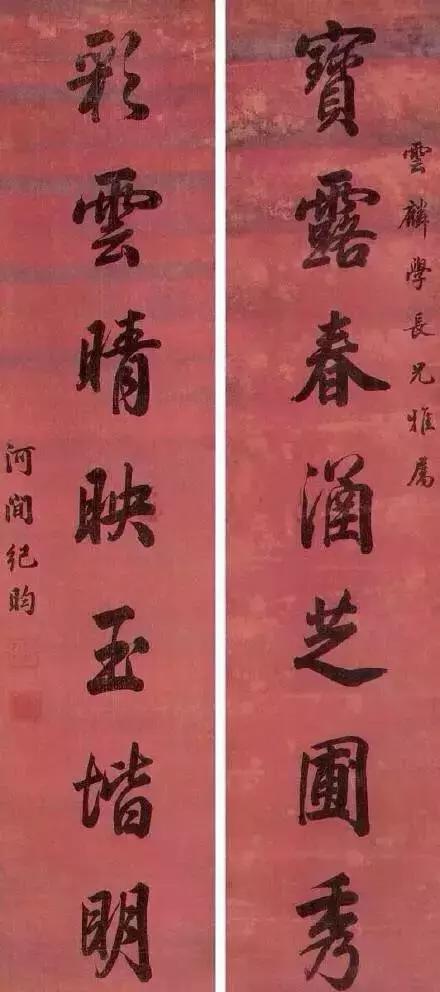 雲麟學長兄雅屬
寶露春涵芝圃秀
彩雲晴映玉堦明
河間紀昀